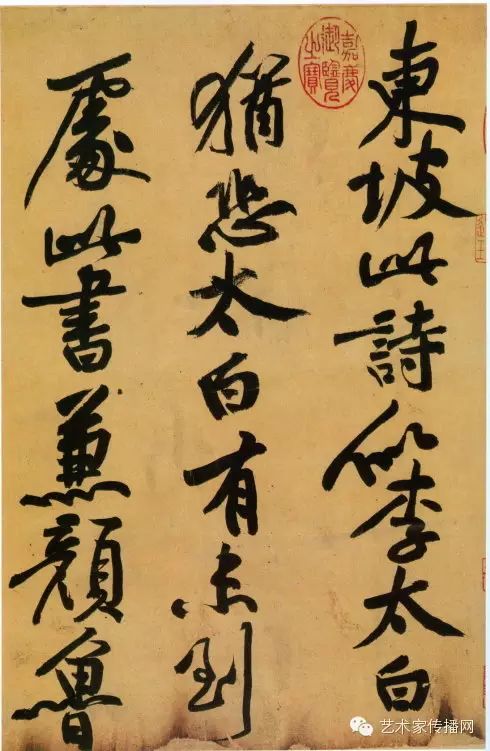 東坡此詩似李太白
猶恐太白有未到
處此書兼顏魯
嘉慶御覽之寶
艺术家传播网